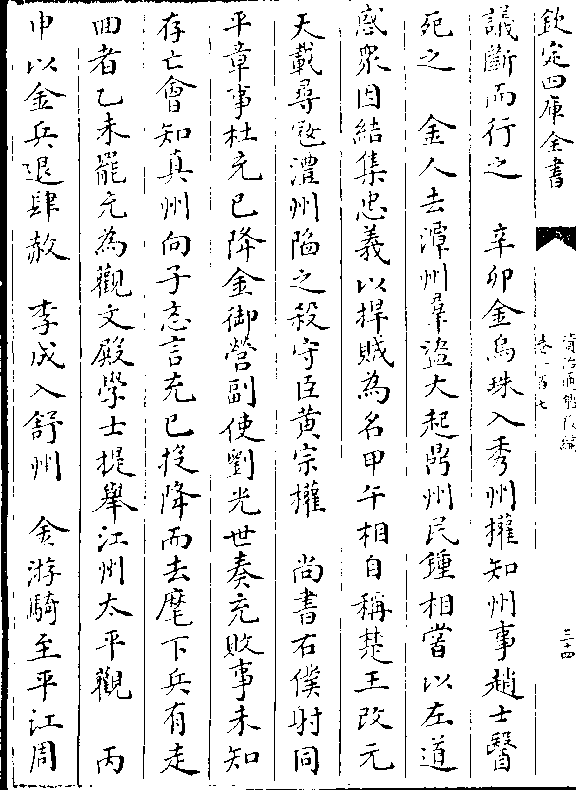 欽定四庫全書
資治通鑑後編
卷一百七
三十四
議斷而行之　辛卯金烏珠入秀州權知州事趙士醫
死之　金人去潭州羣盜大起鼎州民鍾相嘗以左道
惑衆因結集忠義以捍賊為名甲午相自稱楚王改元
天載尋寇澧州陷之殺守臣黄宗權　尚書右僕射同
平章事杜充已降金御營副使劉光世奏充敗事未知
存亡會知真州向子忞言充已投降而去麾下兵有走
回者乙未罷充為觀文殿學士提舉江州太平觀　丙
申以金兵退肆赦　李成入舒州　金游騎至平江周